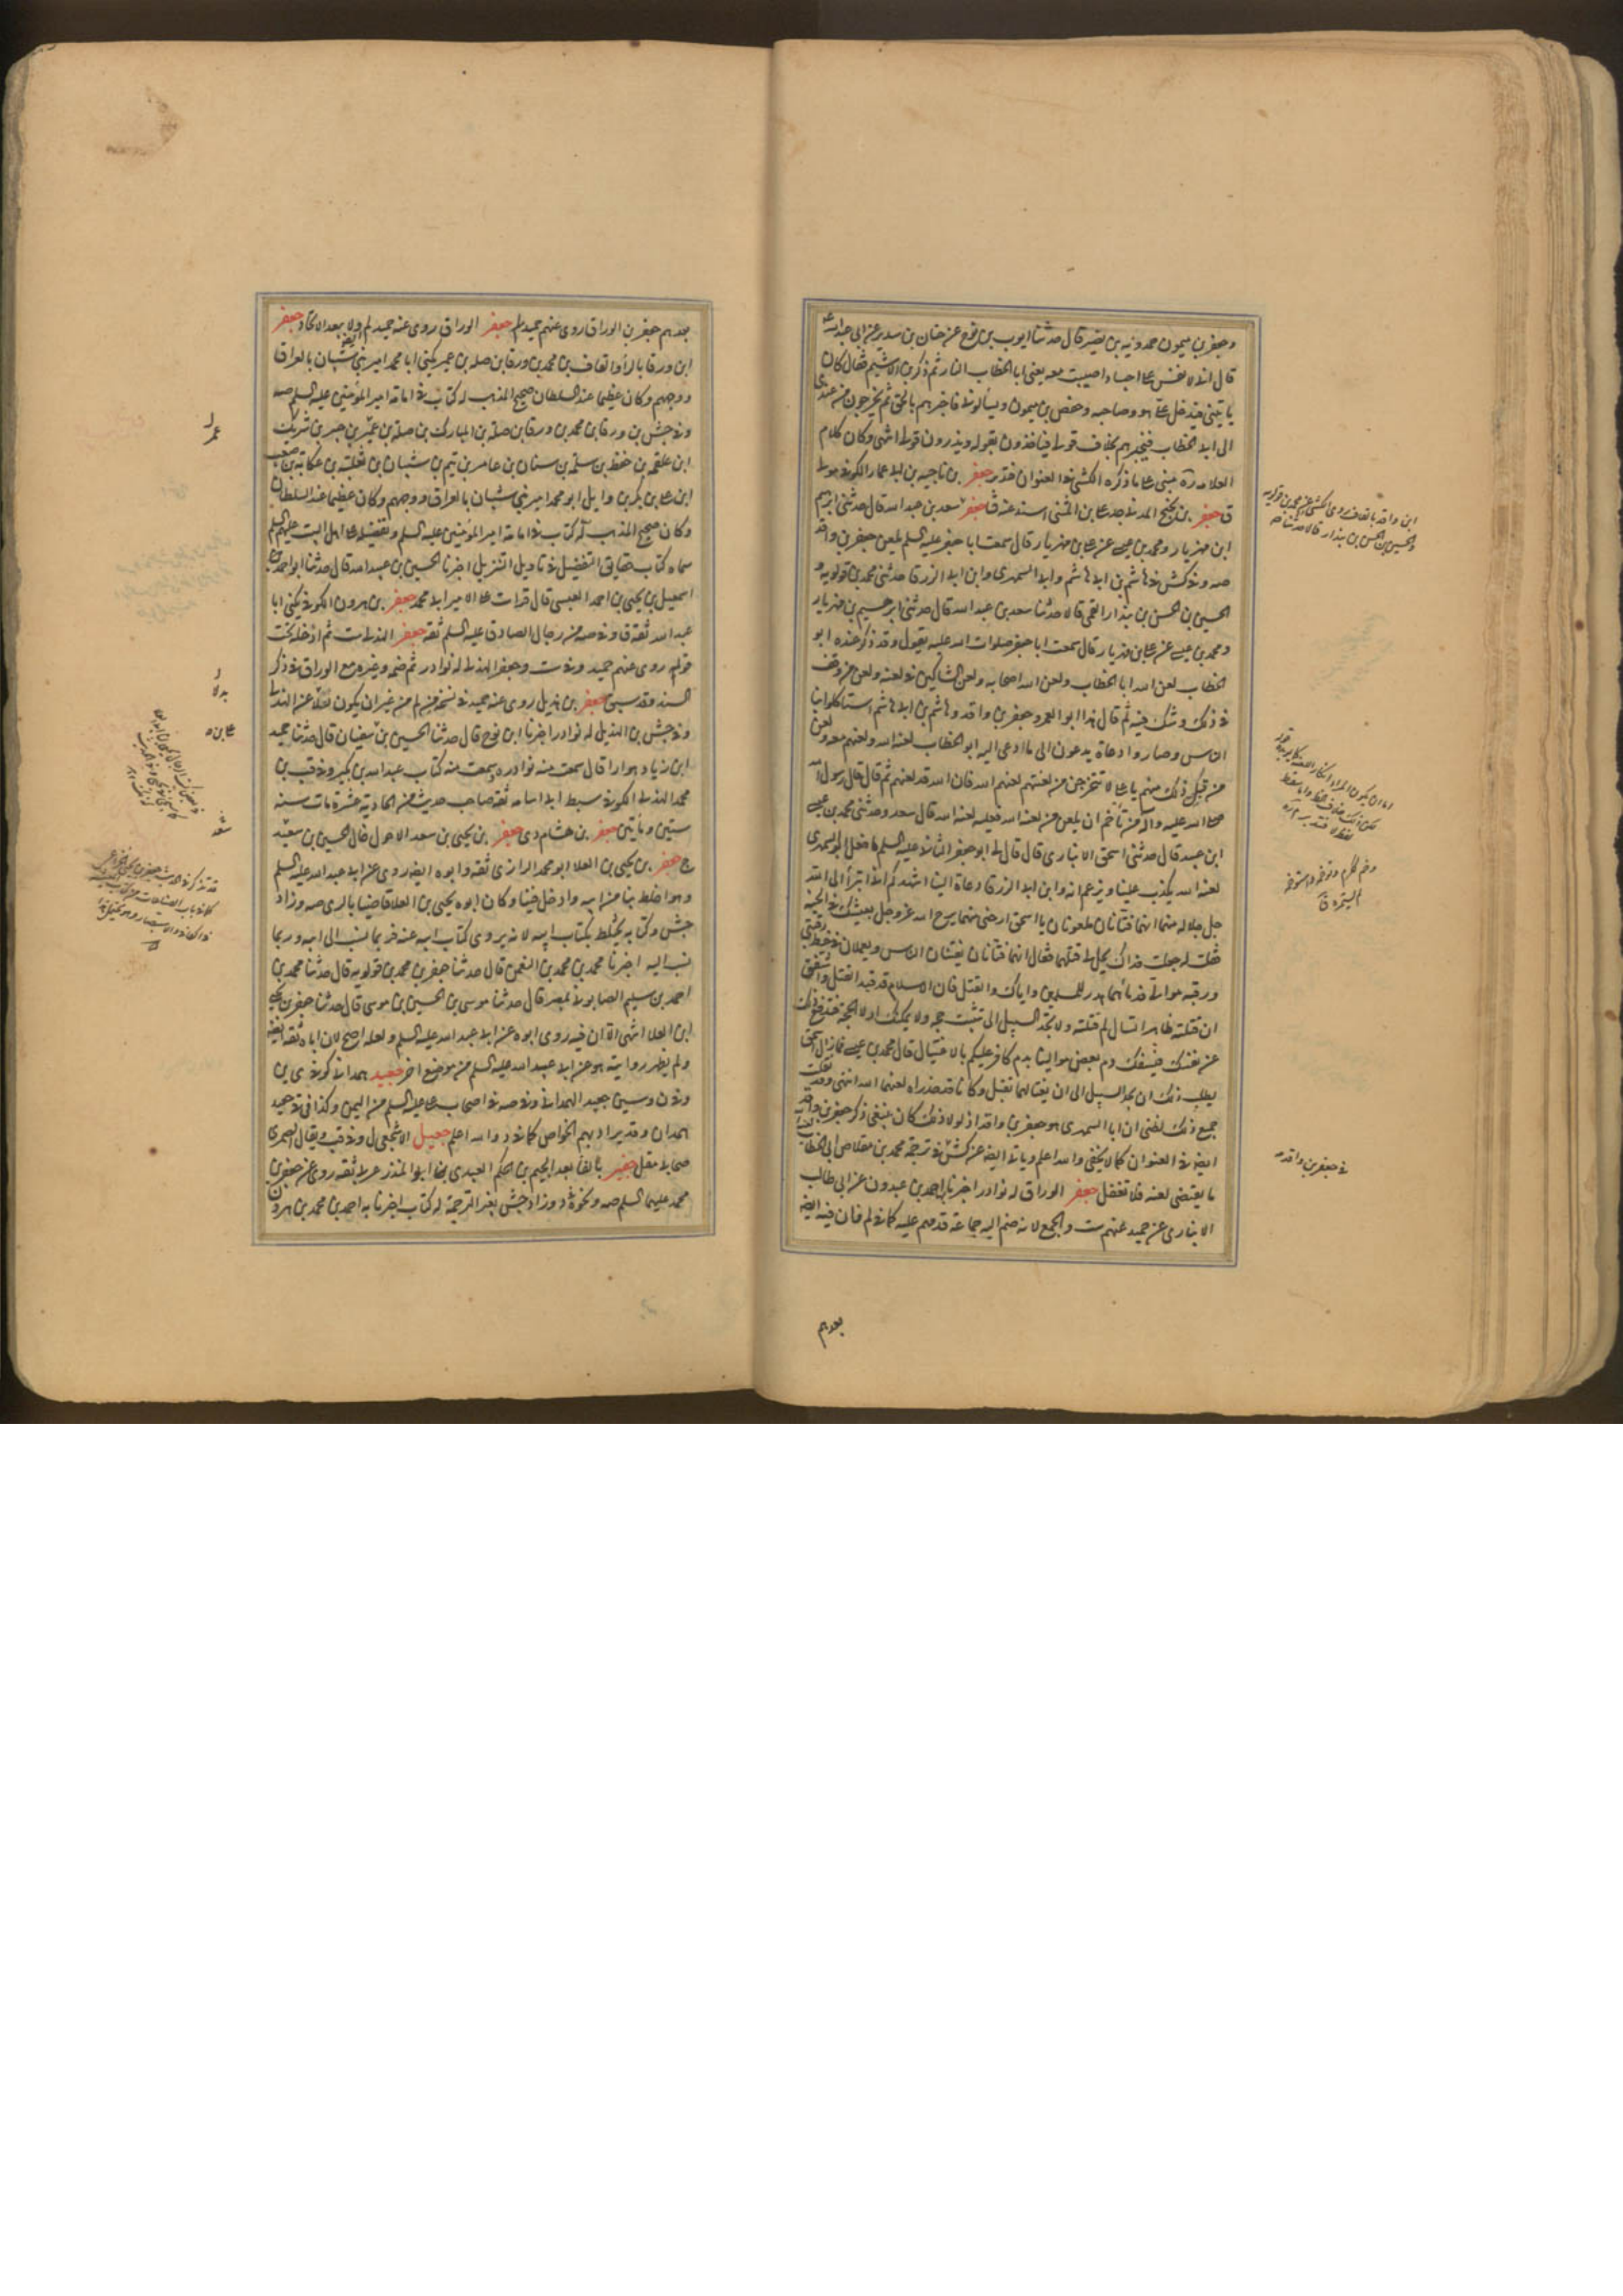 وجعفر بن ميمون حمدويه بن نصير قال حدثنا ايوب بن نوح عن حنان بن سدير عن ابي عبد الله ع
قال اني لانفس على اجساد اصيبت معه يعني ابا الخطاب النار ثم ذكر ابن الاشيم فقال كان
ياتيني فيدخل علي هو وصاحبه وحفص بن ميمون ويسألوني فاخبرهم بالحق ثم يخرجون من عندي
الى ابي الخطاب فيخبرهم بخلاف قولي فياخذون بقوله ويذرون قولي انتهى وكان كلام
العلامة ره مبني على ما ذكره الكشي في هذا العنوان فتدبر جعفر بن ناجيه بن ابي عمار الكوفي مولى
ق جعفر بن نجيح المدني جد علي بن المثنى اسند عنه ق جعفر سعد بن عبد الله قال حدثني ابرهيم
ابن مهزيار ومحمد بن عيسى عن علي بن مهزيار قال سمعت ابا جعفر عليه السلم يلعن جعفر بن واقد
صه وفي كش في هاشم بن ابي هاشم وابي السمهري وابن ابي الزرقا حدثني محمد بن قولويه و
الحسين بن الحسن بن بندار القمي قالا حدثنا سعد بن عبد الله قال حدثني ابرهيم بن مهزيار
ومحمد بن عيسى عن علي بن مهزيار قال سمعت ابا جعفر صلوات الله عليه يقول وقد ذكر عنده ابو
الخطاب لعن الله ابا الخطاب ولعن الله اصحابه ولعن الشاكين في لعنه ولعن من وقف
في ذلك وشك فيه ثم قال هذا ابو الغمر وجعفر بن واقد وهاشم بن ابي هاشم استاكلوا بنا
الناس وصاروا دعاة يدعون الى ما ادعى اليه ابو الخطاب لعنه الله ولعنهم معه ولعن
من قبل ذلك منهم يا علي لا تتحرجن من لعنهم لعنهم الله فان الله قد لعنهم ثم قال قال رسول الله
صلى الله عليه واله من تأثم ان يلعن من لعنه الله فعليه لعنة الله قال سعد وحدثني محمد بن عيسى
ابن عبيد قال حدثني اسحق الانباري قال قال لي ابو جعفر الثاني عليه السلم ما فعل ابو السمهري
لعنه الله يكذب علينا ويزعم انه وابن ابي الزرقا دعاة الينا اشهدكم اني اتبرأ الى الله
جل جلاله منهما انهما فتانان ملعونان يا اسحق ارحني منهما يرح الله عز وجل بعيشك في الجنه
فقلت له جعلت فداك يحل لي قتلهما فقال انهما فتانان يفتنان الناس ويعملان في خيط رقبتي
ورقبة موالي فدمائهما هدر للمسلمين واياك والفتك فان الاسلام قد قيد الفتك واشفق
ان قتلته ظاهرا تسال لم قتلته ولا تجد السبيل الى تثبيت حجه ولا يمكنك ادلاء الحجة فتدفع ذلك
عن نفسك فيسفك دم بعض موالينا بدم كافر عليكم بالاغتيال قال محمد بن عيسى فما زال اسحق
يطلب ذلك ان يجد السبيل الى ان يغتالهما بقتل وكانا قد حذراه لعنهما الله انتهى وقد نقلت
جميع ذلك لظني ان ابا السمهري هو جعفر بن واقد اذ لولا ذلك كان ينبغي ذكر جعفر بن واقد
ايضا في العنوان كما لا يخفى والله اعلم وياتي ايضا عن كش في ترجمة محمد بن مقلاص ابي الخطاب
ما يقتضي لعنه فلا تغفل جعفر الوراق له نوادر اخبرنا احمد بن عبدون عن ابي طالب
الانباري عن حميد عنهم ست والجمع لانه ضم اليه جماعة قدمهم عليه كما في لم فان فيه ايضا
بعدهم
ابن واقد بالقاف روى الكشي عن محمد بن قولويه
والحسين بن الحسن بن بندار قالا حدثنا صه
في جعفر بن واقد
بعدهم جعفر بن الوراق روى عنهم حميد لم جعفر الوراق روى عنه حميد لم ايضا ولا يبعد الاتحاد جعفر
ابن ورقا بالراء والقاف بن محمد بن ورقا بن صله بن عمير يكنى ابا محمد امير بني شيبان بالعراق
ووجههم وكان عظيما عند السلطان صحيح المذهب له كتاب في امامة امير المؤمنين عليه السلم صه
وفي جش بن ورقا بن محمد بن ورقا بن صلة بن المبارك بن صلة بن عمير بن جبر بن شريك
ابن علقمه بن حفظ بن سلمة بن سنان بن عامر بن تيم بن شيبان بن ثعلبة بن عكابة بن صعب
ابن علي بن بكر بن وايل ابو محمد امير بني شيبان بالعراق ووجههم وكان عظيما عند السلطان
وكان صحيح المذهب له كتاب في امامة امير المؤمنين عليه السلم وتفضيله على اهل البيت عليهم السلم
سماه كتاب حقايق التفضيل في تاويل التنزيل اخبرنا الحسين بن عبيد الله قال حدثنا ابو احمد
اسمعيل بن يحيى بن احمد العبسي قال قرات على الامير ابي محمد جعفر بن هرون الكوفي يكنى ابا
عبد الله ثقه ق وفي صه من رجال الصادق عليه السلم ثقه جعفر الهذلي ست ثم ادخله تحت
قوله روى عنهم حميد وفي ست وجعفر الهذلي له نوادر ثم ضمه وغيره مع الوراق في ذكر
السند وقد سبق جعفر بن هذيل روى عنه حميد في نسخة من لم من غير ان يكون نقلا عن الهذلي
وفي جش بن الهذيل له نوادر اخبرنا ابن نوح قال حدثنا الحسين بن سفيان قال حدثنا حميد
ابن زياد بهوارا قال سمعت منه نوادره وسمعت منه كتاب عبد الله بن بكير وفي قب بن
محمد الهذلي الكوفي سبط ابي اسامه ثقه صاحب حديث من الحادية عشرة مات سنه
ستين ومايتين جعفر بن هشام دي جعفر بن يحيى بن سعد الاحول قال الحسين بن سعيد
ج جعفر بن يحيى بن العلا ابو محمد الرازي ثقه وابوه ايضا روى عن ابي عبد الله عليه السلم
وهو اخلط بنا من ابيه وادخل فينا وكان ابوه يحيى بن العلا قاضيا بالري صه وزاد
جش وكتابه يختلط بكتاب ابيه لانه يروى كتاب ابيه عنه فربما نسب الى ابيه وربما
نسب اليه اخبرنا محمد بن محمد بن النعمن قال حدثنا جعفر بن محمد بن قولويه قال حدثنا محمد بن
احمد بن سليم الصابوني بمصر قال حدثنا موسى بن الحسين بن موسى قال حدثنا جعفر بن يحيى
ابن العلا انتهى الا ان فيه روى ابوه عن ابي عبد الله عليه السلم ولعله اصح لان اباه ثقه ايضا
ولم يظهر روايته هو عن ابي عبد الله عليه السلم من موضع اخر جعيد همداني كوفي ي ين
وفي ن وسين جعيد الهمداني وفي صه في اصحاب علي عليه السلم من اليمن وكذا في قي جعيد
همدان وقد يراد بهم الخواص كما في د والله اعلم جعيل الاشجعي ل وفي قب ويقال الضمري
صحابي مقل جفير بالفاء بعد الجيم بن الحكم العبدي ابو المنذر عربي ثقه روى عن جعفر بن
محمد عليهما السلم صه ونحوه د وزاد جش بغير الترجمة له كتاب اخبرنا به احمد بن محمد بن هرون